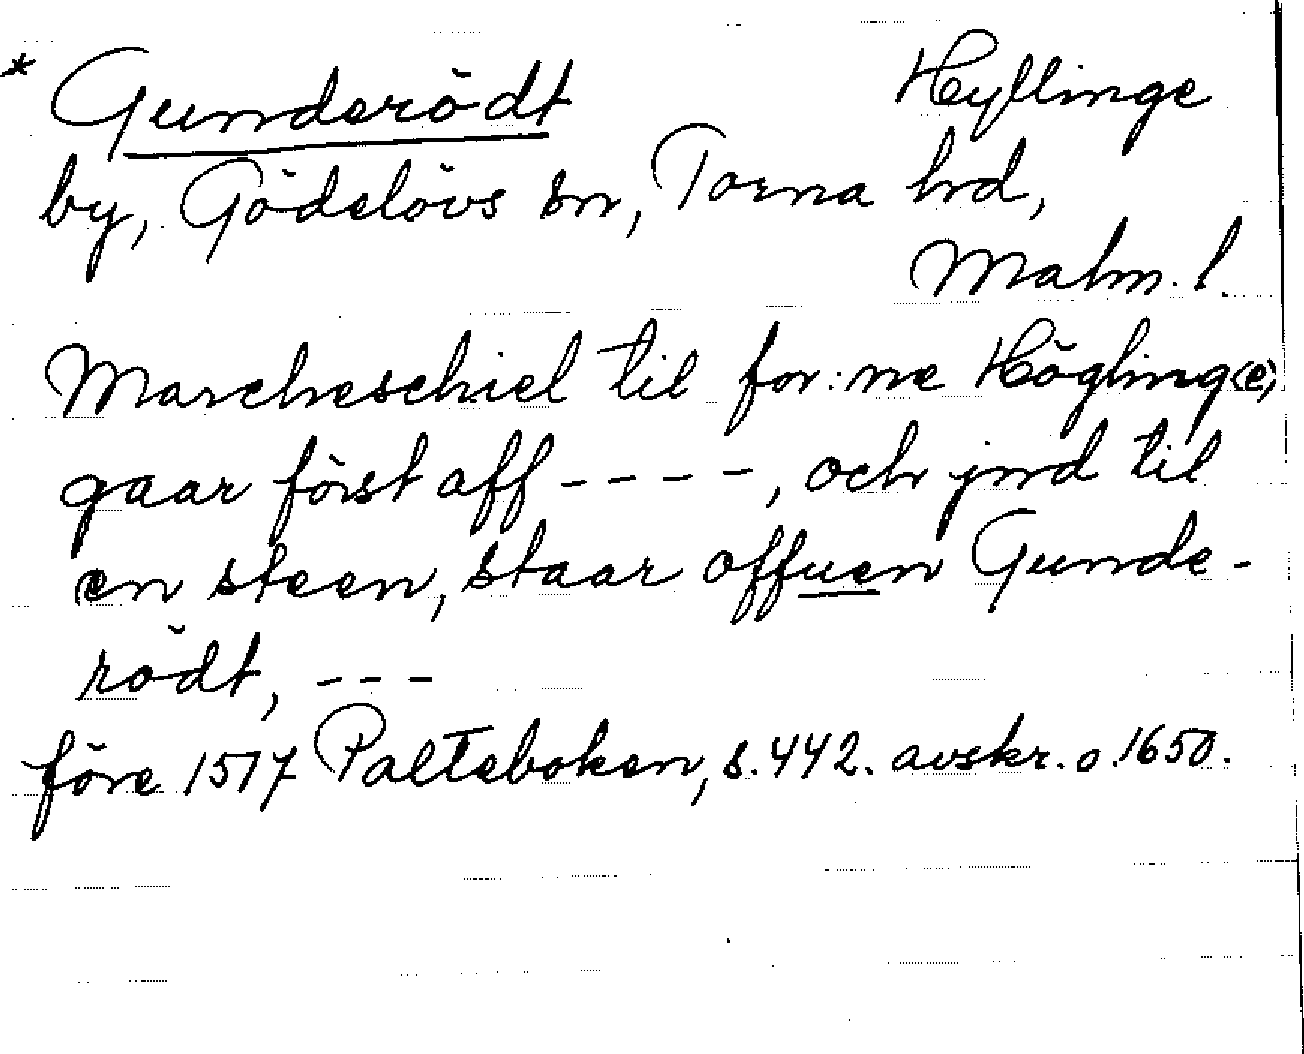 * Gunderödt Heyllinge
by, Gödelövs sn, Torna hrd,
Malm. l.
Marcheschiel til for:ne Högling(e)
gaar först aff - - - -, och jnd til
en steen, staar offuen Gunde-
rödt, - - -
före 1517 Palteboken, s. 442. avskr. o. 1650.